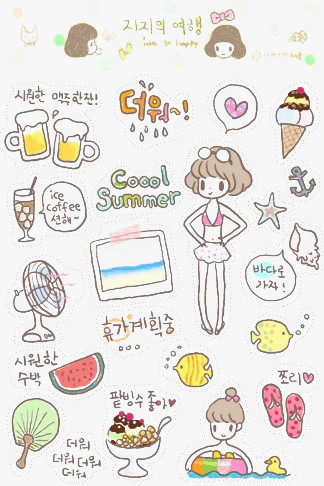 지지의 여행
시원한 맥주한잔!
더워~!
ice
coffee
션해~
Coool
Summer
바다로
가자!
휴가계획중
시원한
수박
팥빙수 좋아♥
쪼리♥
더워
더워 더워
더워